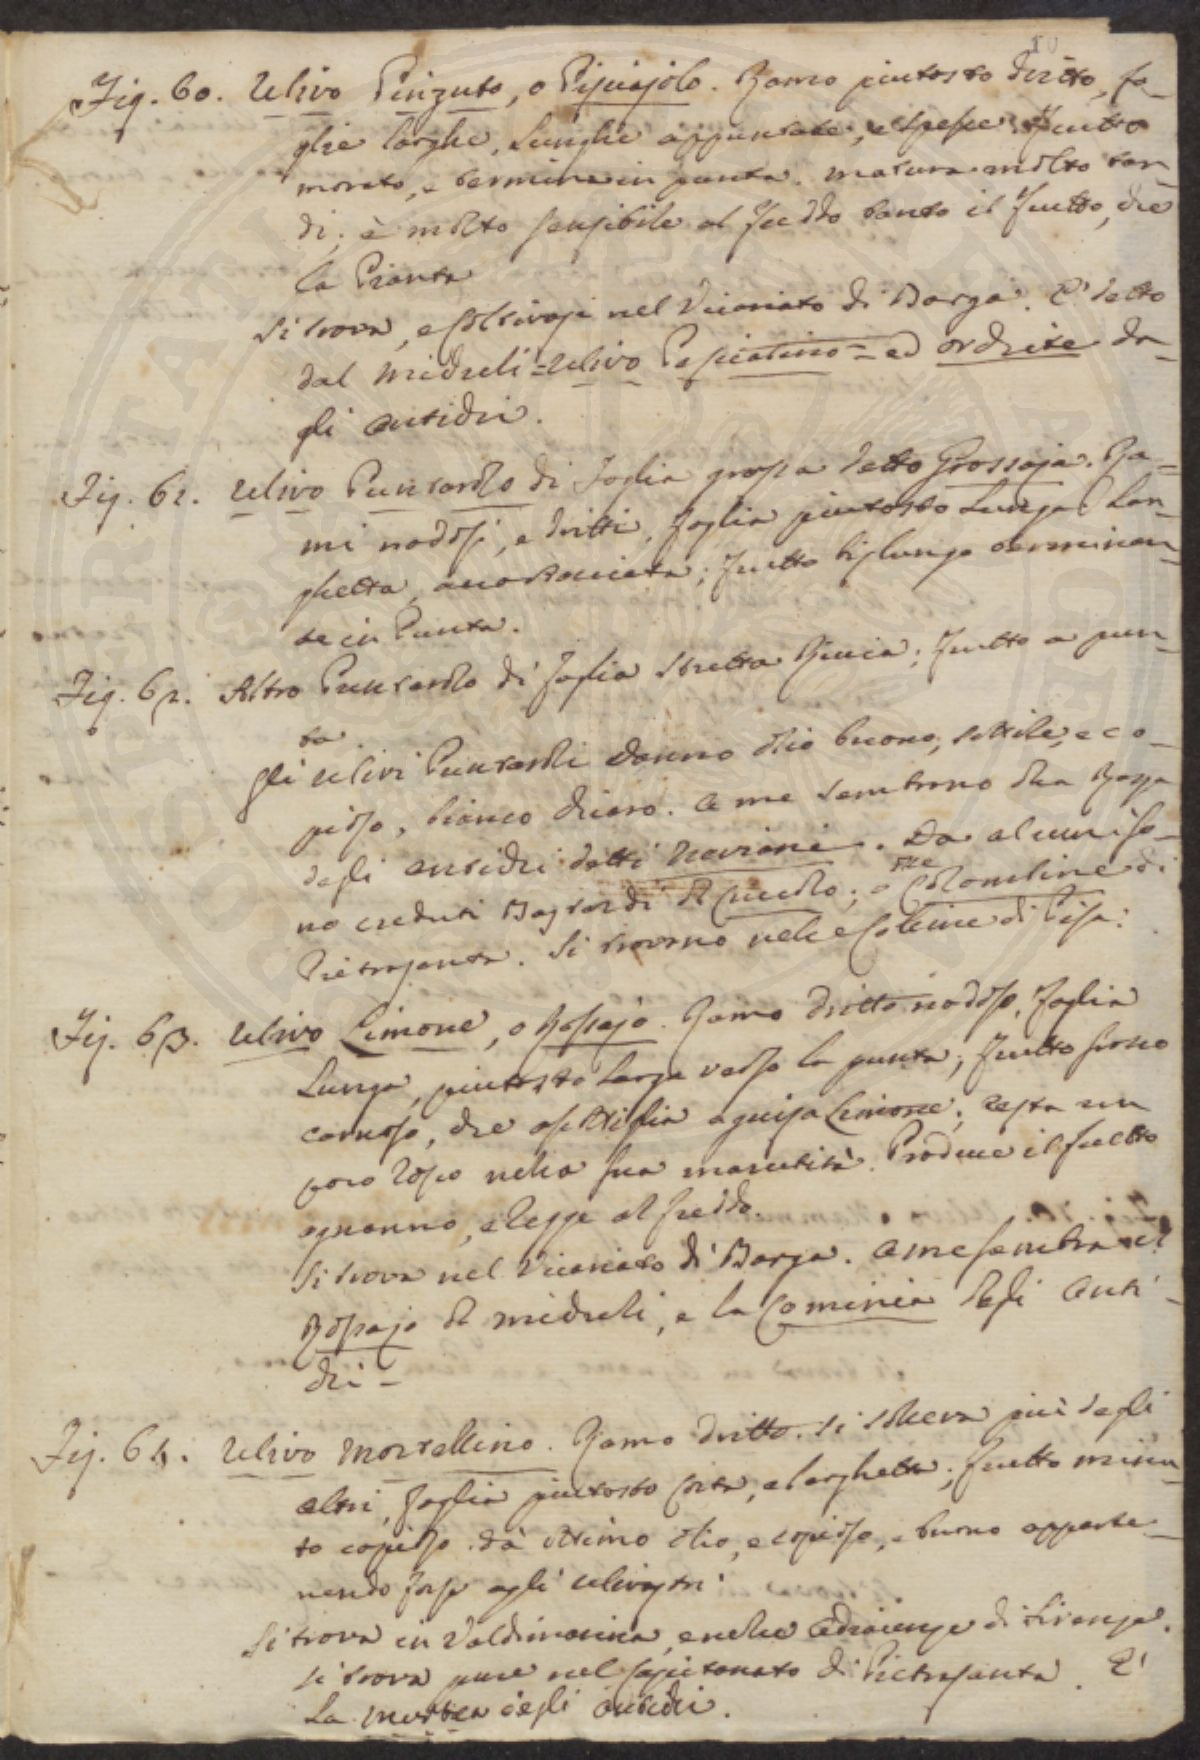 10
Fig. 60. Ulivo Pinzuto, o Pipiajolo. Ramo piutosto dritto, fo-
glie larghe, lunghe appuntate, e spesse. Frutto
morato, e termina in punta. matura molto tar-
di; è molto sensibile al freddo tanto il frutto, che
la Pianta
Si trova, e coltivasi nel Vicariato di Barga. E' detto
dal Micheli = Ulivo Pesciatino = ed orchite da-
gli antichi.
Fig. 61. Ulivo Puntarolo di foglia grossa detto Grossaja. Ra-
mi nodosi, e dritti, foglia piutosto lunga, lar-
ghetta, accartociata; frutto bislungo terminan-
te in Punta.
Fig. 62. Altro Puntarolo di foglia stretta Riccia; frutto a pun-
ta
gli ulivi Puntaroli danno olio buono, sottile, e co-
pioso, bianco chiaro. A me sembrano della Razza
degli antichi detti Neviani. Da alcuni so-
no creduti Bastardi del Cucco; o Colombine di
Pietrasanta. Si trovano nelle Colline di Pisa.
Fig. 63. Ulivo Limone, o Rossajo. Ramo dritto nodoso, foglia
lunga, piutosto larga verso la punta; frutto grosso
carnoso, che assottiglia a guisa Limone; resta un
poco rosso nella sua maturità. Produce il frutto
ognanno, e regge al freddo.
Si trova nel Vicariato di Barga. A me sembra il
Rossajo del Micheli, e la Cominia degli Anti-
chi -
Fig. 64. Ulivo Mortellino. Ramo dritto. Si solleva più degli
altri, foglia piutosto corta, e larghetta; frutto minu-
to copioso. dà ottimo olio, e copioso, e buono apparte-
nendo forse agli ulivastri.
Si trova in Valdimarina, e nelle Adiacenze di Firenze.
Si trova pure nel Capitanato di Pietrasanta. E'
La Murtea degli Antichi.